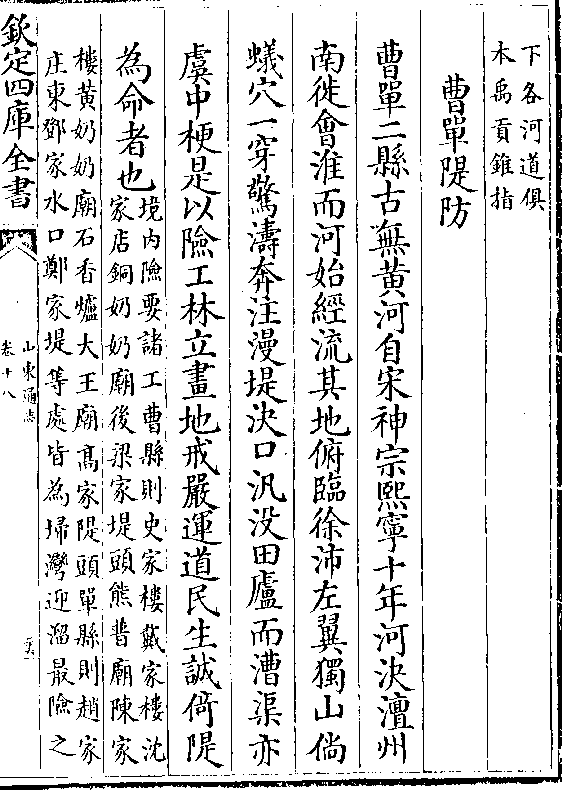 下各河道俱
本禹貢錐指
曹單隄防
曹單二縣古無黄河自宋神宗熙寧十年河決澶州
南徙會淮而河始經流其地俯臨徐沛左翼獨山倘
蟻穴一穿驚濤奔注漫堤決口汎没田廬而漕渠亦
虞中梗是以險工林立畫地戒嚴運道民生誠倚隄
為命者也
境内險要諸工曹縣則史家樓戴家樓沈
家店銅奶奶廟後梁家堤頭熊普廟陳家
樓黄奶奶廟石香爐大王廟髙家隄頭單縣則趙家
庄東鄧家水口鄭家堤等處皆為埽灣迎溜最險之
欽定四庫全書
山東通志
卷十八